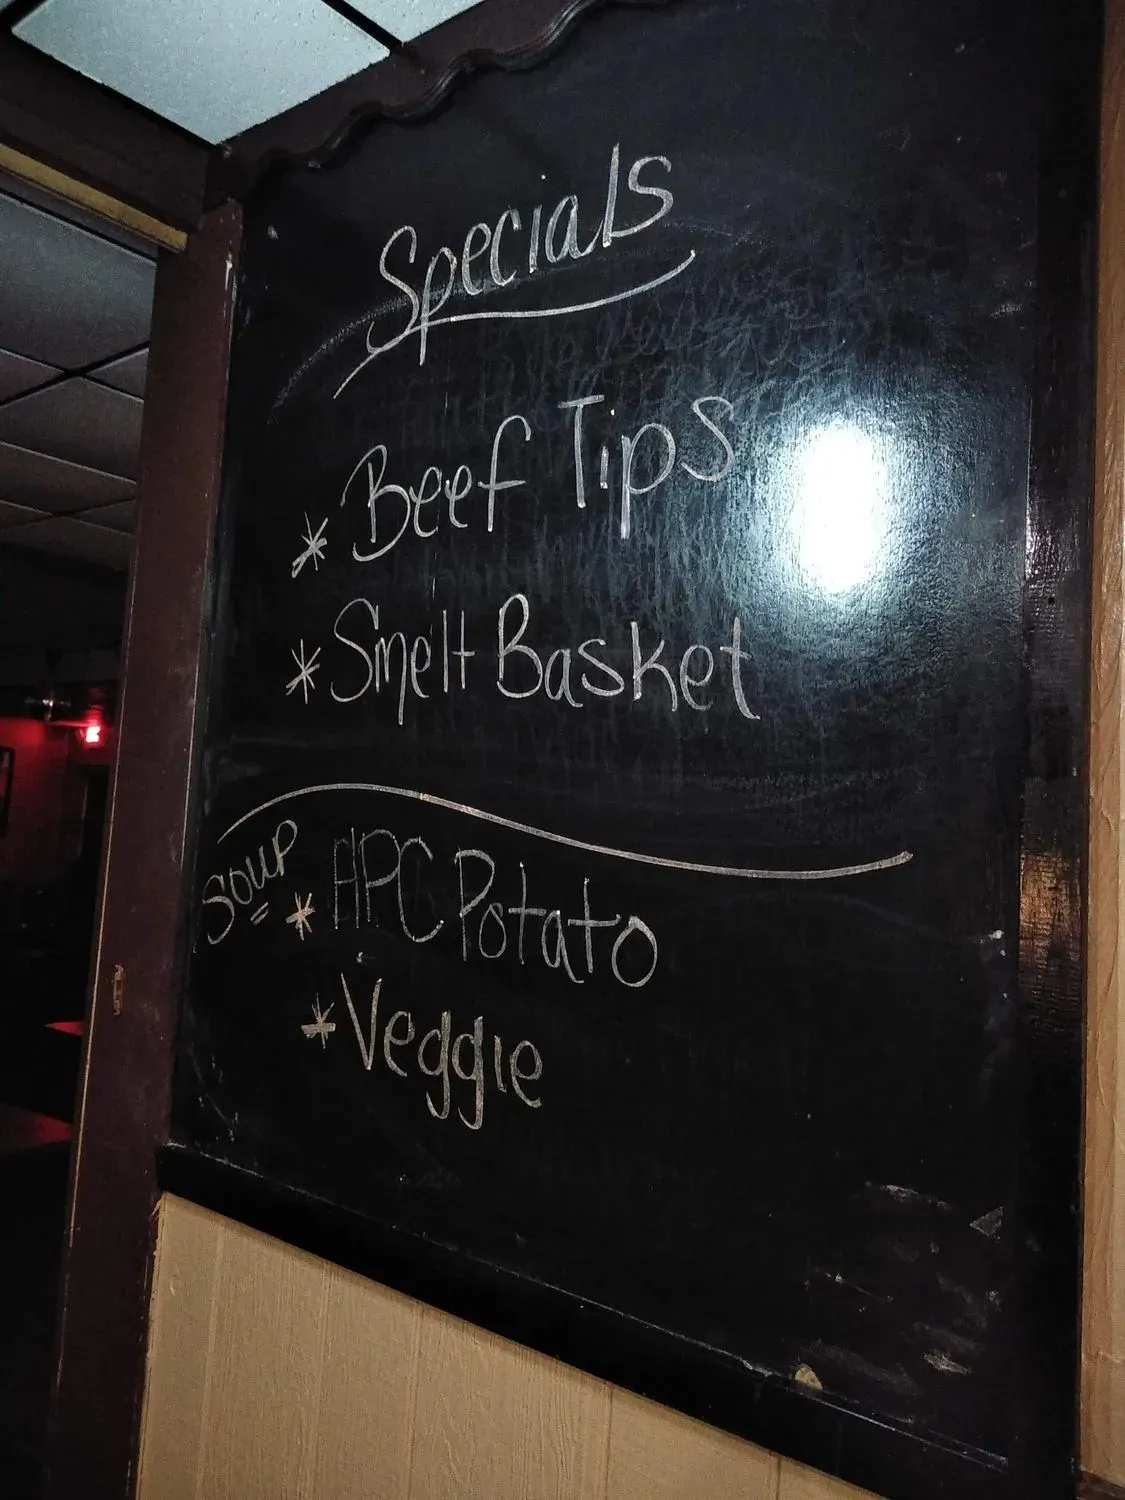 Specials
* Beef Tips
* Smelt Basket
Soup * APC Potato
* Veggie